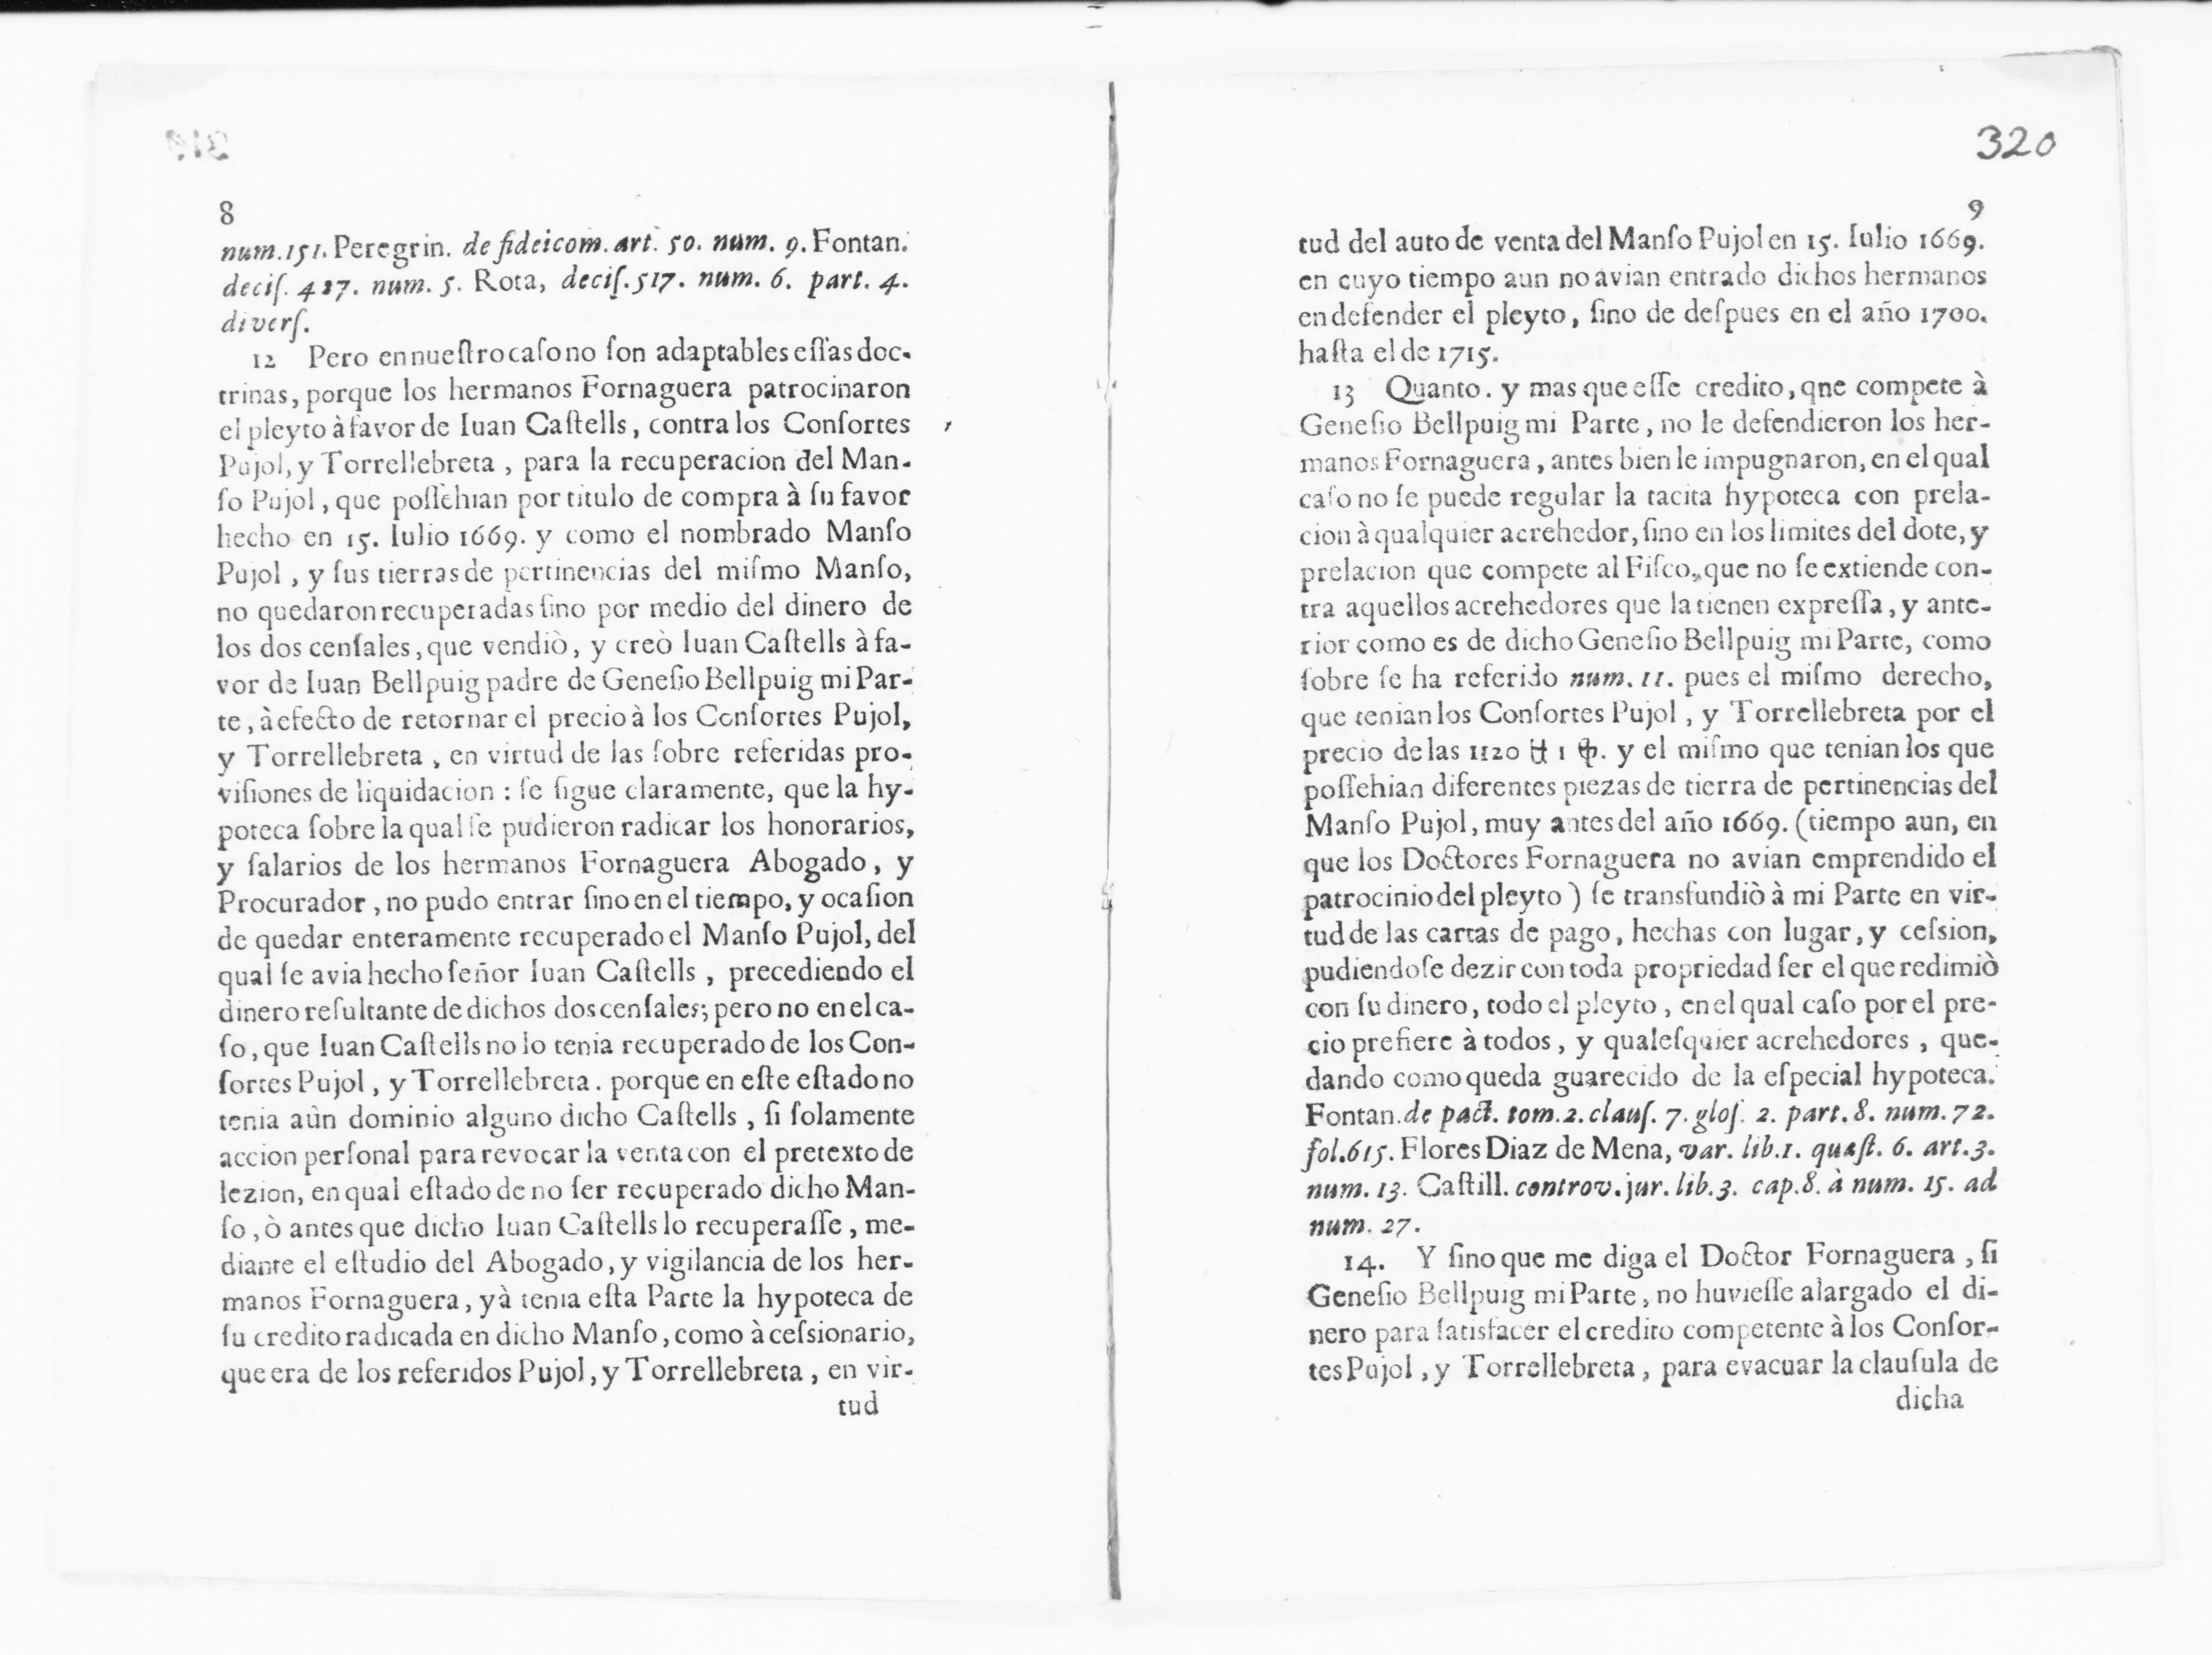 8
num.151. Peregrin. de fideicom. art. 50. num. 9. Fontan.
deciſ. 427. num. 5. Rota, deciſ. 517. num. 6. part. 4.
diverſ.
12 Pero en nueſtro caſo no ſon adaptables eſſas doc-
trinas, porque los hermanos Fornaguera patrocinaron
el pleyto à favor de Iuan Caſtells, contra los Conſortes
Pujol, y Torrellebreta, para la recuperacion del Man-
ſo Pujol, que poſſehian por titulo de compra à ſu favor
hecho en 15. Iulio 1669. y como el nombrado Manſo
Pujol, y ſus tierras de pertinencias del miſmo Manſo,
no quedaron recuperadas ſino por medio del dinero de
los dos cenſales, que vendiò, y creò Iuan Caſtells à fa-
vor de Iuan Bellpuig padre de Geneſio Bellpuig mi Par-
te, à efecto de retornar el precio à los Conſortes Pujol,
y Torrellebreta, en virtud de las ſobre referidas pro-
viſiones de liquidacion : ſe ſigue claramente, que la hy-
poteca ſobre la qual ſe pudieron radicar los honorarios,
y ſalarios de los hermanos Fornaguera Abogado, y
Procurador, no pudo entrar ſino en el tiempo, y ocaſion
de quedar enteramente recuperado el Manſo Pujol, del
qual ſe avia hecho ſeñor Iuan Caſtells, precediendo el
dinero reſultante de dichos dos cenſales; pero no en el ca-
ſo, que Iuan Caſtells no lo tenia recuperado de los Con-
ſortes Pujol, y Torrellebreta. porque en eſte eſtado no
tenia aùn dominio alguno dicho Caſtells, ſi ſolamente
accion perſonal para revocar la venta con el pretexto de
lezion, en qual eſtado de no ſer recuperado dicho Man-
ſo, ò antes que dicho Iuan Caſtells lo recuperaſſe, me-
diante el eſtudio del Abogado, y vigilancia de los her-
manos Fornaguera, yà tenia eſta Parte la hypoteca de
ſu credito radicada en dicho Manſo, como à ceſsionario,
que era de los referidos Pujol, y Torrellebreta, en vir-
tud
320
9
tud del auto de venta del Manſo Pujol en 15. Iulio 1669.
en cuyo tiempo aun no avian entrado dichos hermanos
en defender el pleyto, ſino de deſpues en el año 1700.
haſta el de 1715.
13 Quanto. y mas que eſſe credito, qne compete à
Geneſio Bellpuig mi Parte, no le defendieron los her-
manos Fornaguera, antes bien le impugnaron, en el qual
caſo no ſe puede regular la tacita hypoteca con prela-
cion à qualquier acrehedor, ſino en los limites del dote, y
prelacion que compete al Fiſco, que no ſe extiende con-
tra aquellos acrehedores que la tienen expreſſa, y ante-
rior como es de dicho Geneſio Bellpuig mi Parte, como
ſobre ſe ha referido num. 11. pues el miſmo derecho,
que tenian los Conſortes Pujol, y Torrellebreta por el
precio de las 1120 ₶ 1 ſ. y el miſmo que tenian los que
poſſehian diferentes piezas de tierra de pertinencias del
Manſo Pujol, muy antes del año 1669. (tiempo aun, en
que los Doctores Fornaguera no avian emprendido el
patrocinio del pleyto ) ſe transfundiò à mi Parte en vir-
tud de las cartas de pago, hechas con lugar, y ceſsion,
pudiendoſe dezir con toda propriedad ſer el que redimiò
con ſu dinero, todo el pleyto, en el qual caſo por el pre-
cio prefiere à todos, y qualeſquier acrehedores, que-
dando como queda guarecido de la eſpecial hypoteca.
Fontan. de pact. tom. 2. clauſ. 7. gloſ. 2. part. 8. num. 72.
fol. 615. Flores Diaz de Mena, var. lib. 1. quæſt. 6. art. 3.
num. 13. Caſtill. controv. jur. lib. 3. cap. 8. à num. 15. ad
num. 27.
14. Y ſino que me diga el Doctor Fornaguera, ſi
Geneſio Bellpuig mi Parte, no huvieſſe alargado el di-
nero para ſatisfacer el credito competente à los Conſor-
tes Pujol, y Torrellebreta, para evacuar la clauſula de
dicha